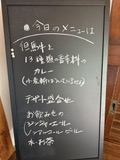 今日のメニューは
但馬牛と
13種類の香辛料の
カレー
デザート盛合せ
お飲みもの
ジンジャエール
ノンアルコールビール
水・お茶